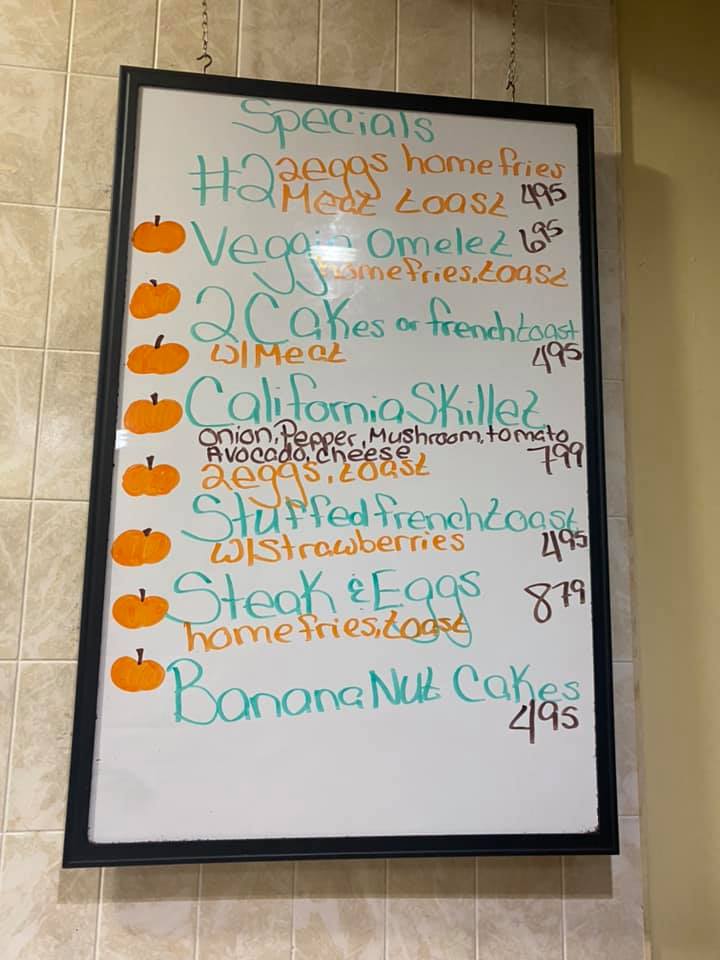 Specials
#2 2eggs home fries
Meat toast 495
Veggie Omelet 695
homefries, toast
2 Cakes or french toast
W/Meat 495
California Skillet
onion, Pepper, Mushroom, tomato
Avocado, cheese 799
2eggs, toast
Stuffed french toast
W/Strawberries 495
Steak & Eggs 879
home fries, toast
Banana Nut Cakes
495